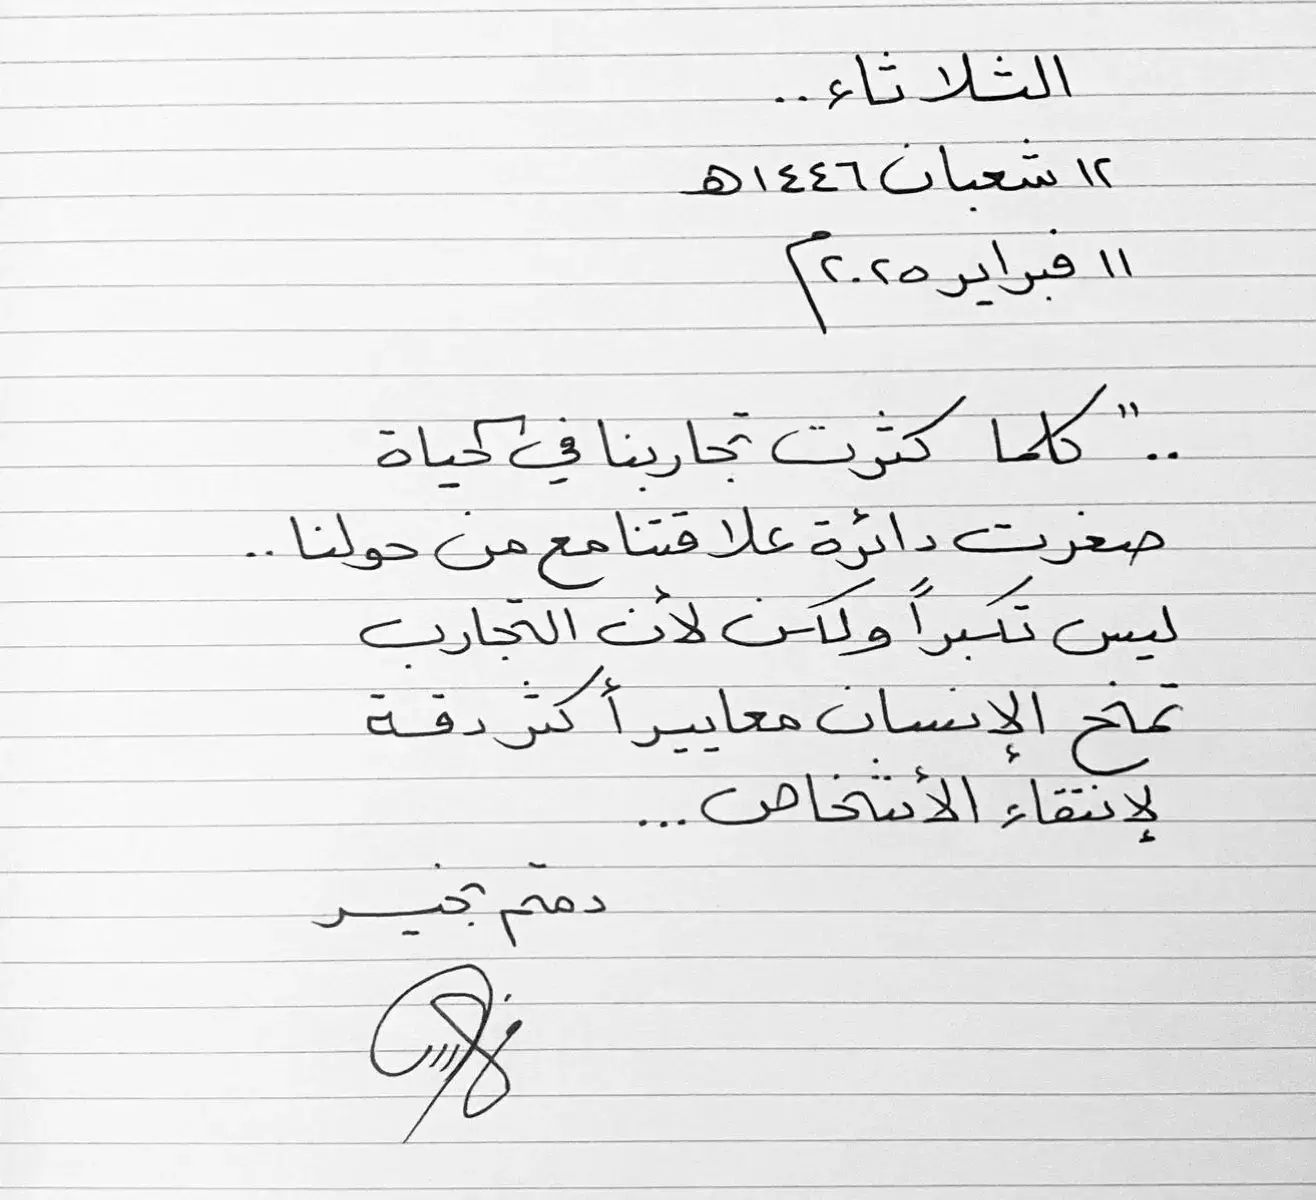 الثلاثاء..
١٢ شعبان ١٤٤٦هـ
١١ فبراير ٢٠٢٥م
.." كلما كثرت تجاربنا في الحياة
صغرت دائرة علاقتنا مع من حولنا..
ليس تكبراً ولكن لأن التجارب
تمنح الإنسان معاييراً أكثر دقة
لإنتقاء الأشخاص...
دمتم بخير